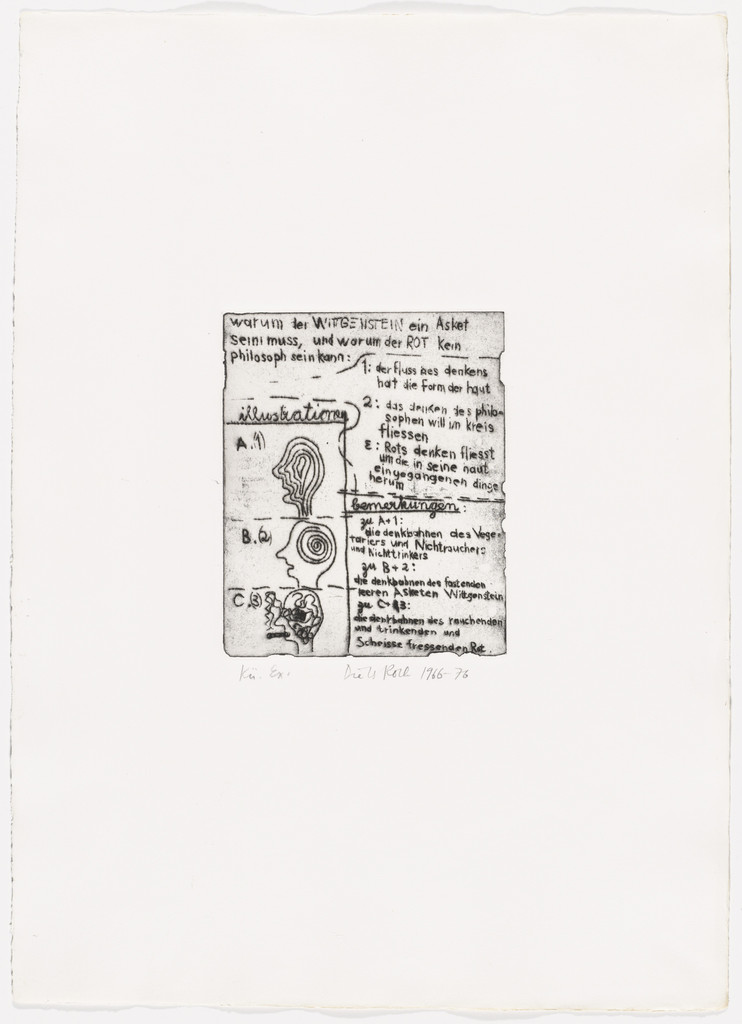 warum der WITTGENSTEIN ein Asket
sein muss, und warum der ROT kein
philosoph sein kann:
1: der fluss des denkens
hat die form der haut
2: das denken des philo-
sophen will im kreis
fliessen
3: Rots denken fliesst
um die in seine haut
eingegangenen dinge
herum
illustrationen
A.(1)
B.(2)
C.(3)
bemerkungen:
zu A+1:
die denkbahnen des Vege-
tariers und Nichtrauchers
und Nichttrinkers
zu B+2:
die denkbahnen des fastenden
leeren Asketen Wittgenstein
zu C+3:
die denkbahnen des rauchenden
und trinkenden und
Scheisse fressenden Rot.
Kü. Ex. Dieter Roth 1966-73